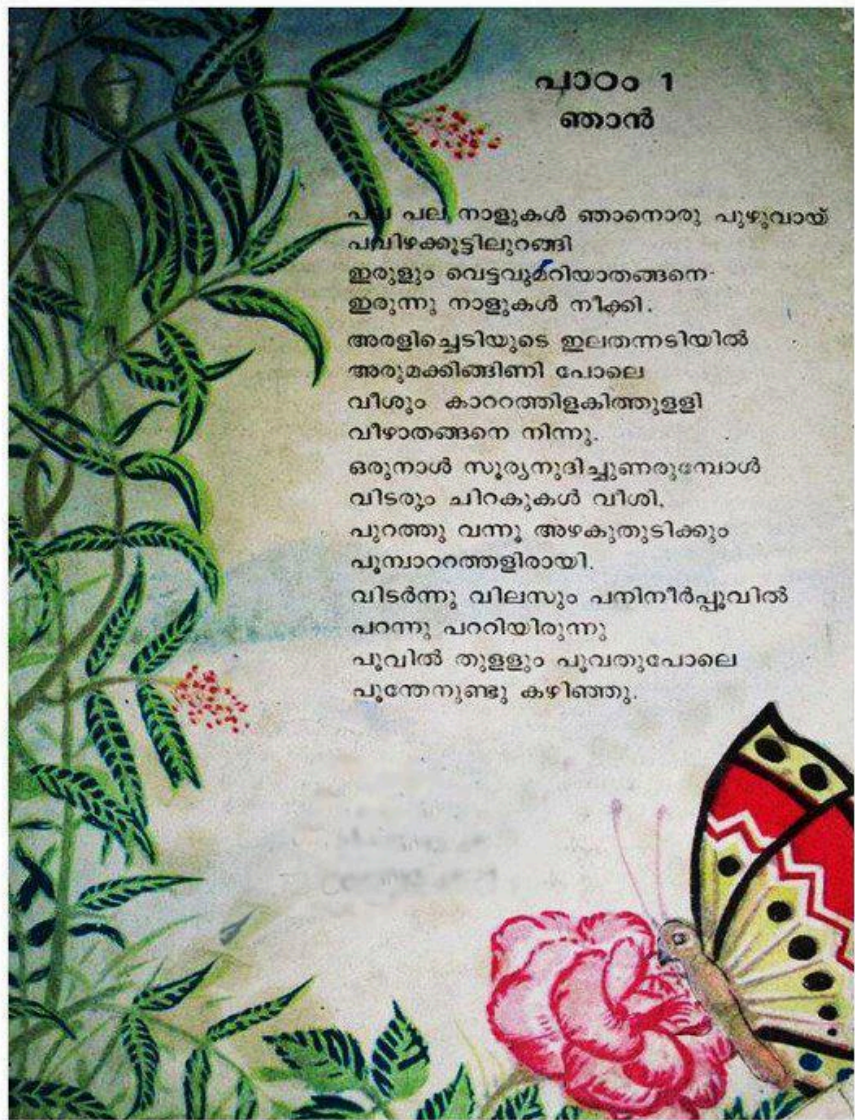 പാഠം 1
ഞാൻ
പല പല നാളുകൾ ഞാനൊരു പുഴുവായ്
പവിഴക്കൂട്ടിലുറങ്ങി
ഇരുളും വെട്ടവുമറിയാതങ്ങനെ
ഇരുന്നു നാളുകൾ നീക്കി.
അരളിച്ചെടിയുടെ ഇലതന്നടിയിൽ
അരുമക്കിങ്ങിണി പോലെ
വീശും കാററത്തിളകിത്തുളളി
വീഴാതങ്ങനെ നിന്നു.
ഒരുനാൾ സൂര്യനുദിച്ചുണരുമ്പോൾ
വിടരും ചിറകുകൾ വീശി,
പുറത്തു വന്നൂ അഴകുതുടിക്കും
പൂമ്പാററത്തളിരായി.
വിടർന്നു വിലസും പനിനീർപ്പൂവിൽ
പറന്നു പററിയിരുന്നു
പൂവിൽ തുളളും പൂവതുപോലെ
പൂന്തേനുണ്ടു കഴിഞ്ഞു.